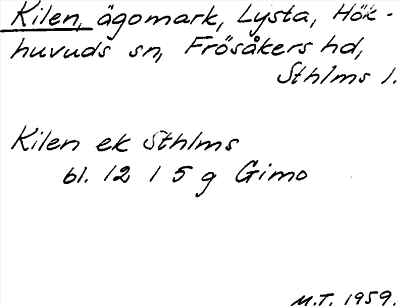 Kilen, ägomark, Lysta, Hök-
huvuds sn, Frösåkers hd,
Sthlms l.
Kilen ek Sthlms
bl. 12 1 5 g Gimo
M.T. 1959.